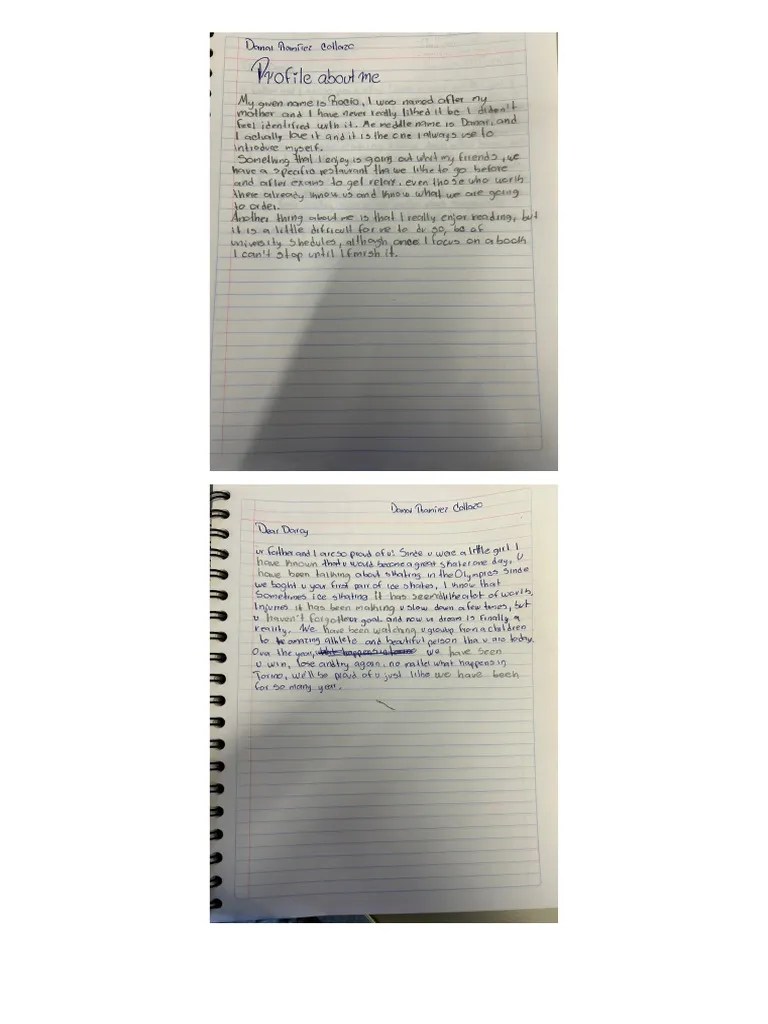 Danae Ramírez Collazo
Profile about me
My given name is Rocio, I was named after my
mother and I have never really liked it bc I diden't
feel identified with it. Me meddle name is Danae, and
I actually love it and it is the one I always use to
introduce myself.
Something that I enjoy is going out whit my friends, we
have a specific restaurant tha we like to go before
and after exams to get relax, even those who work
there already know us and know what we are going
to order.
Another thing about me is that I really enjoy reading, but
it is a little difficult for me to do so, bc of
university shedules, although once I focus on a book
I can't stop until I finish it.
Danae Ramírez Collazo
Dear Darcy
ur father and I are so proud of u! Since u were a little girl I
have known that u would become a great skater one day, u
have been talking about skating in the Olympics since
we boght u your first pair of ice skates, I know that
Sometimes ice skating it has seem like a lot of work,
Injuries it has been making u slow down a few times, but
u haven't forgot ur goal and now ur dream is finally a
reality. We have been watching u group from a children
to be amazing athlete and beautiful person tha u are today.
Over the year, we have seen
u win, lose and try again, no matter what happens in
Torino, we'll be proud of u just like we have been
for so many year.